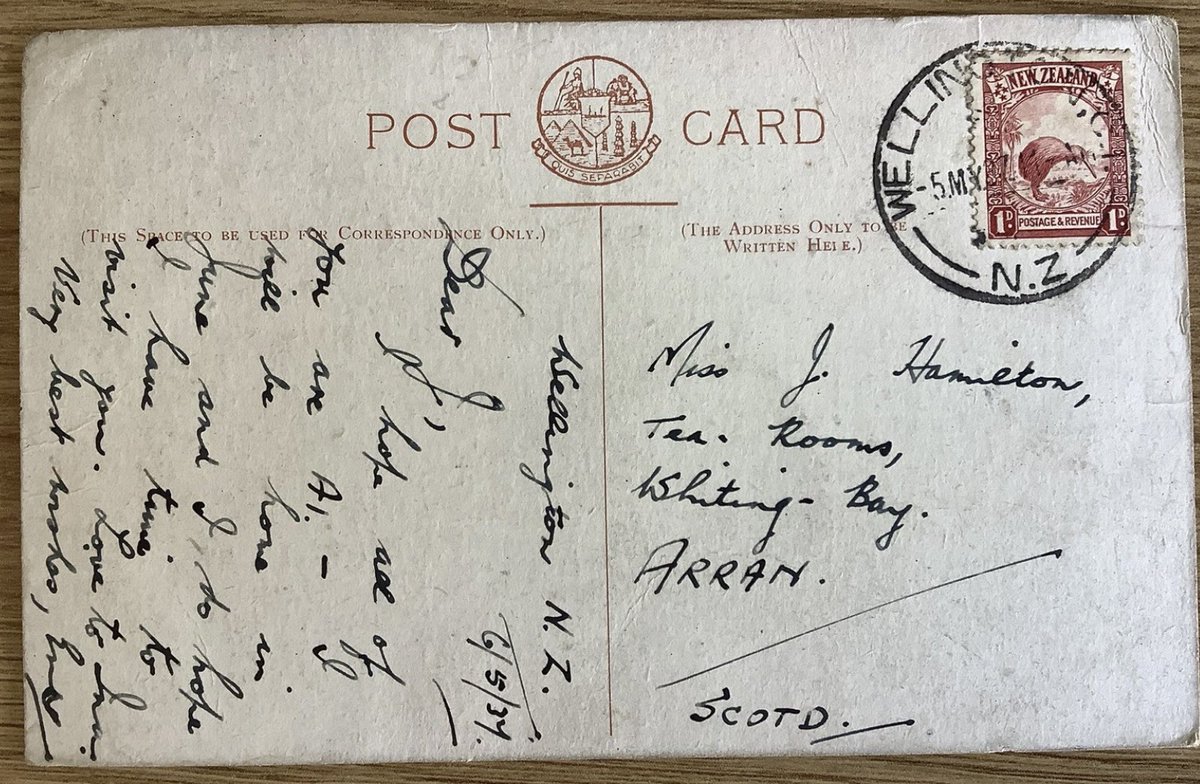 POST CARD
QUIS SEPARABIT
(THIS SPACE TO BE USED FOR CORRESPONDENCE ONLY.)
Wellington N.Z.
Dear J,
I hope all of
you are A1. – I
will be home in
June and I do hope
I have time to
visit you. Love to
Very best wishes,
(THE ADDRESS ONLY TO BE
WRITTEN HERE.)
NEW ZEALAND
1D POSTAGE & REVENUE 1D
WELLIN
-5.MY
N.Z
Miss J. Hamilton,
Tea. Rooms,
Whiting-Bay.
ARRAN.
SCOTD.